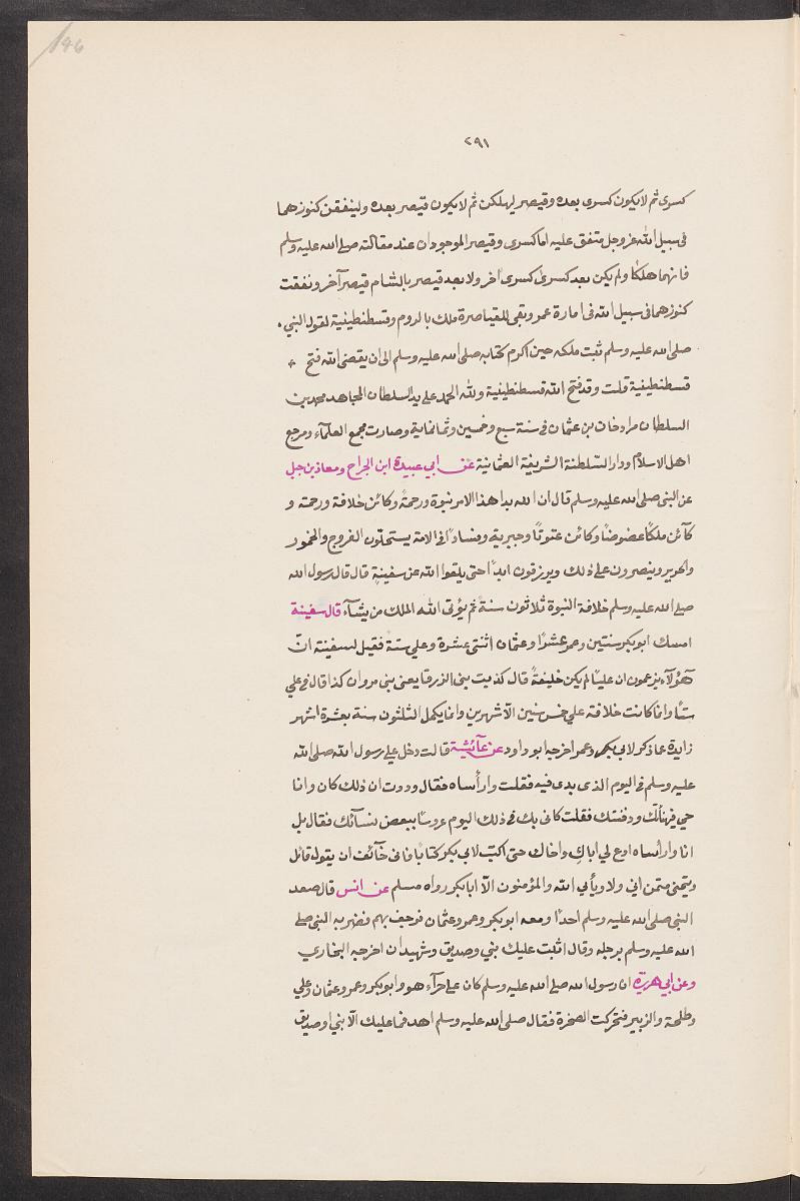 146
٢٩١
كسرى ثم لا يكون كسرى بعده وقيصر ليهلكن ثم لا يكون قيصر بعده ولينفقن كنوزهما
فى سبيل الله عز وجل متفق عليه اما كسرى وقيصر الموجودان عند مقالته صلى الله عليه وسلم
فانهما هلكا ولم يكن بعد كسرىٰ كسرى اخر ولا بعد قيصر بالشام قيصر آخر ونفقت
كنوزهما فى سبيل الله فى امارة عمر وبقى للقياصرة ملك بالروم وقسطنطينية لقول النبي
صلى الله عليه وسلم ثبت ملكه حين اكرم كتابه صلى الله عليه وسلم الى ان يقضى الله فتح
قسطنطينية قلت وقد فتح الله قسطنطينية ولله الحمد على يد السلطان المجاهد محمد بن
السلطان مراد خان بن عثمان فى سنة سبع وخمسين وثمانماية وصارت مجمع العلمآء ومرجع
اهل الاسلام ودار السّلطنة الشريفة العثمانية عن ابي عبيدة ابن الجراح ومعاذ بن جبل
عن النبى صلى الله عليه وسلم قال ان الله بدا هذا الامر نبوة ورحمةً وكائن خلافة ورحمة و
كآئن ملكًا عضوضًا وكائن عتوتًا وجبرية وفسادًا فى الامة يستحلّون الفروج والخمور
والحرير وينصرون على ذلك ويرزقون ابدًا حتى يلقوا الله عن سفينة قال قال رسول الله
صلى الله عليه وسلم خلافة النبوة ثلاثون سنة ثم يؤتى الله الملك من يشآء قال سفينة
امسك ابو بكر سنتين وعمر عشرًا وعثمان اثنتى عشرة وعلي ستة فقيل لسفينة انّ
هؤلاء يزعمون ان عليًا لم يكن خليفةً قال كذبت بنى الزرقا يعنى بنى مروان كذا قال في علي
ستًا وانما كانت خلافة علي خمس سنين الّا شهرين وانما يكمل الثلثون سنة بعشرة اشهر
زايدة عما ذكر لابي بكر وعمر اخرجه ابو داود عن عآئشة قالت دخل علي رسول الله صلى الله
عليه وسلم فى اليوم الذى بدى فيه فقلت وارأساه فقال وددت ان ذلك كان وانا
حي فهيأتك ودفنتك فقلت كانى بك فى ذلك اليوم عروسًا ببعض نسآئك فقال بل
انا وارأساه ادع لي اباكِ واخاك حتى اكتب لابي بكر كتابًا فانى خآئف ان يقول قائل
ويتمنى متمن اني ولا ويأبى الله والمؤمنون الّا ابا بكر رواه مسلم عن انس قال صعد
النبى صلى الله عليه وسلم احدًا ومعه ابو بكر وعمر وعثمان فرجف بهم فضربه النبى صلى
الله عليه وسلم برجله وقال اثبت عليك نبي وصديق وشهيدان اخرجه البخاري
وعن ابى هريرة ان رسول الله صلى الله عليه وسلم كان على حرآء هو وابو بكر وعمر وعثمان وعلي
وطلحة والزبير فتحركت الصخرة فقال صلى الله عليه وسلم اهد فما عليك الّا نبي او صديق